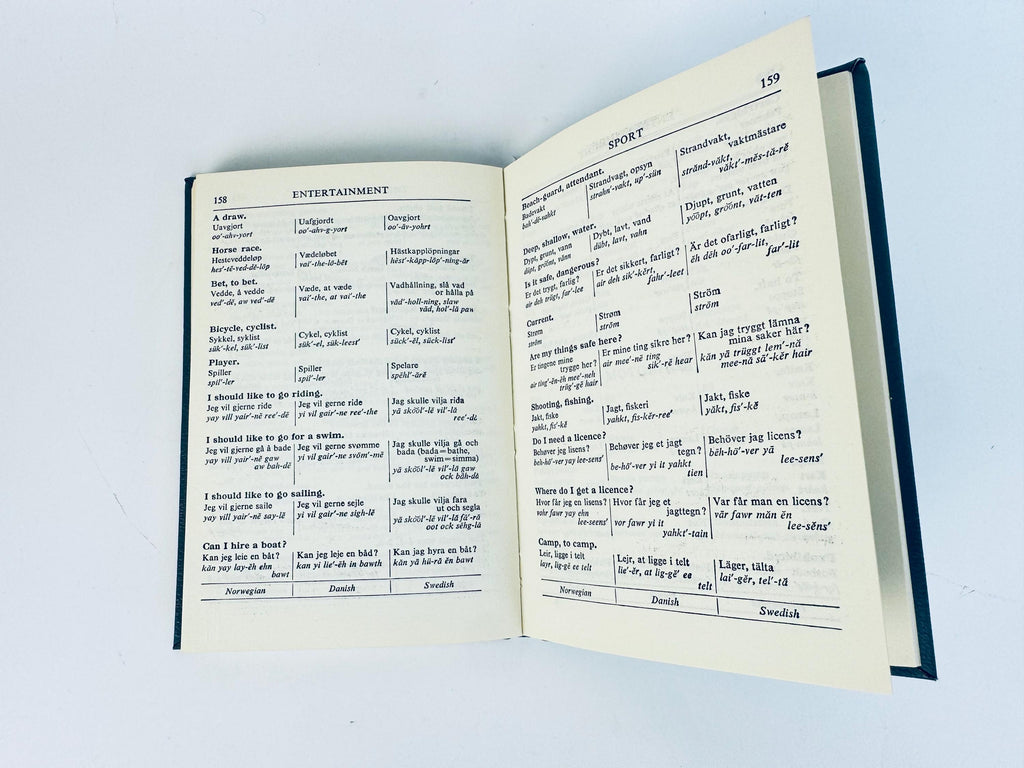 158
ENTERTAINMENT
A draw.
Uavgjort
oo'-ahv-yort
Uafgjordt
oo'-ahv-g-yort
Oavgjort
oo'-āv-yohrt
Horse race.
Hesteveddeløp
hes'-tĕ-ved-dĕ-löp
Vædeløbet
vai'-the-lö-bĕt
Hästkapplöpningar
hĕst'-kăpp-löp'-ning-är
Bet, to bet.
Vedde, å vedde
ved'-dĕ, aw ved'-dĕ
Væde, at væde
vai'-the, at vai'-the
Vadhållning, slå vad
or hålla på
väd'-holl-ning, slaw
väd, hol'-lä paw
Bicycle, cyclist.
Sykkel, syklist
sük'-kel, sük'-list
Cykel, cyklist
sük'-el, sük-leest'
Cykel, cyklist
sück'-ĕl, sück-list'
Player.
Spiller
spil'-ler
Spiller
spil'-ler
Spelare
spĕhl'-ārĕ
I should like to go riding.
Jeg vil gjerne ride
yay vill yair'-nĕ ree'-dĕ
Jeg vil gerne ride
yi vil gair'-ne ree'-the
Jag skulle vilja rida
yā skŏŏl'-lĕ vil'-lă
ree'-dă
I should like to go for a swim.
Jeg vil gjerne gå å bade
yay vill yair'-nĕ gaw
aw bah-dĕ
Jeg vil gerne svømme
yi vil gair'-ne svöm'-mĕ
Jag skulle vilja gå och
bada (bada=bathe,
swim=simma)
yā skŏŏl'-lĕ vil'-lă gaw
ock bāh-dă
I should like to go sailing.
Jeg vil gjerne saile
yay vill yair'-nĕ say-lĕ
Jeg vil gerne sejle
yi vil gair'-ne sigh-lĕ
Jag skulle vilja fara
ut och segla
yā skŏŏl'-lĕ vil'-lă fā'-ră
oot ock sĕhg-lă
Can I hire a boat?
Kan jeg leie en båt?
kăn yay lay-ĕh ehn
bawt
Kan jeg leje en båd?
kan yi lie'-ĕh in bawth
Kan jag hyra en båt?
kăn yā hü-ră ĕn bawt
Norwegian
Danish
Swedish
159
SPORT
Beach-guard, attendant.
Badevakt
bah'-dĕ-vahkt
Strandvagt, opsyn
strahn'-vakt, up'-sün
Strandvakt,
vaktmästare
strānd-văkt,
văkt'-mĕs-tă-rĕ
Deep, shallow, water.
Dypt, grunt, vann
düpt, grŏŏnt, vănn
Dybt, lavt, vand
dübt, lavt, vahn
Djupt, grunt, vatten
yŏŏpt, grŏŏnt, văt-ten
Is it safe, dangerous?
Er det trygt, farlig?
air deh trügt, far'-lee
Er det sikkert, farligt?
air deh sik'-kĕrt,
fahr'-leet
Är det ofarligt, farligt?
ĕh dĕh oo'-far-lit,
far'-lit
Current.
Strøm
ström
Strøm
ström
Ström
ström
Are my things safe here?
Er tingene mine
trygge her?
air ting'-ĕn-ĕh mee'-neh
trüg'-gĕ hair
Er mine ting sikre her?
air mee'-nĕ ting
sik'-rĕ hear
Kan jag tryggt lämna
mina saker här?
kăn yā trüggt lem'-nă
mee-nă sā'-kĕr hair
Shooting, fishing.
Jakt, fiske
yahkt, fis'-kĕ
Jagt, fiskeri
yahkt, fis-kĕr-ree'
Jakt, fiske
yăkt, fis'-kĕ
Do I need a licence?
Behøver jeg lisens?
bĕh-hö'-ver yay lee-sens'
Behøver jeg et jagt
tegn?
be-hö'-ver yi it yahkt
tien
Behöver jag licens?
bĕh-hö'-ver yā
lee-sens'
Where do I get a licence?
Hvor får jeg en lisens?
vohr fawr yay ehn
lee-seens'
Hvor får jeg et
jagttegn?
vor fawr yi it
yahkt'-tain
Var får man en licens?
văr fawr măn ĕn
lee-sĕns'
Camp, to camp.
Leir, ligge i telt
layr, lig-gĕ ee telt
Lejr, at ligge i telt
lie'-ĕr, at lig-gĕ' ee
telt
Läger, tälta
lai'-gĕr, tel'-tă
Norwegian
Danish
Swedish